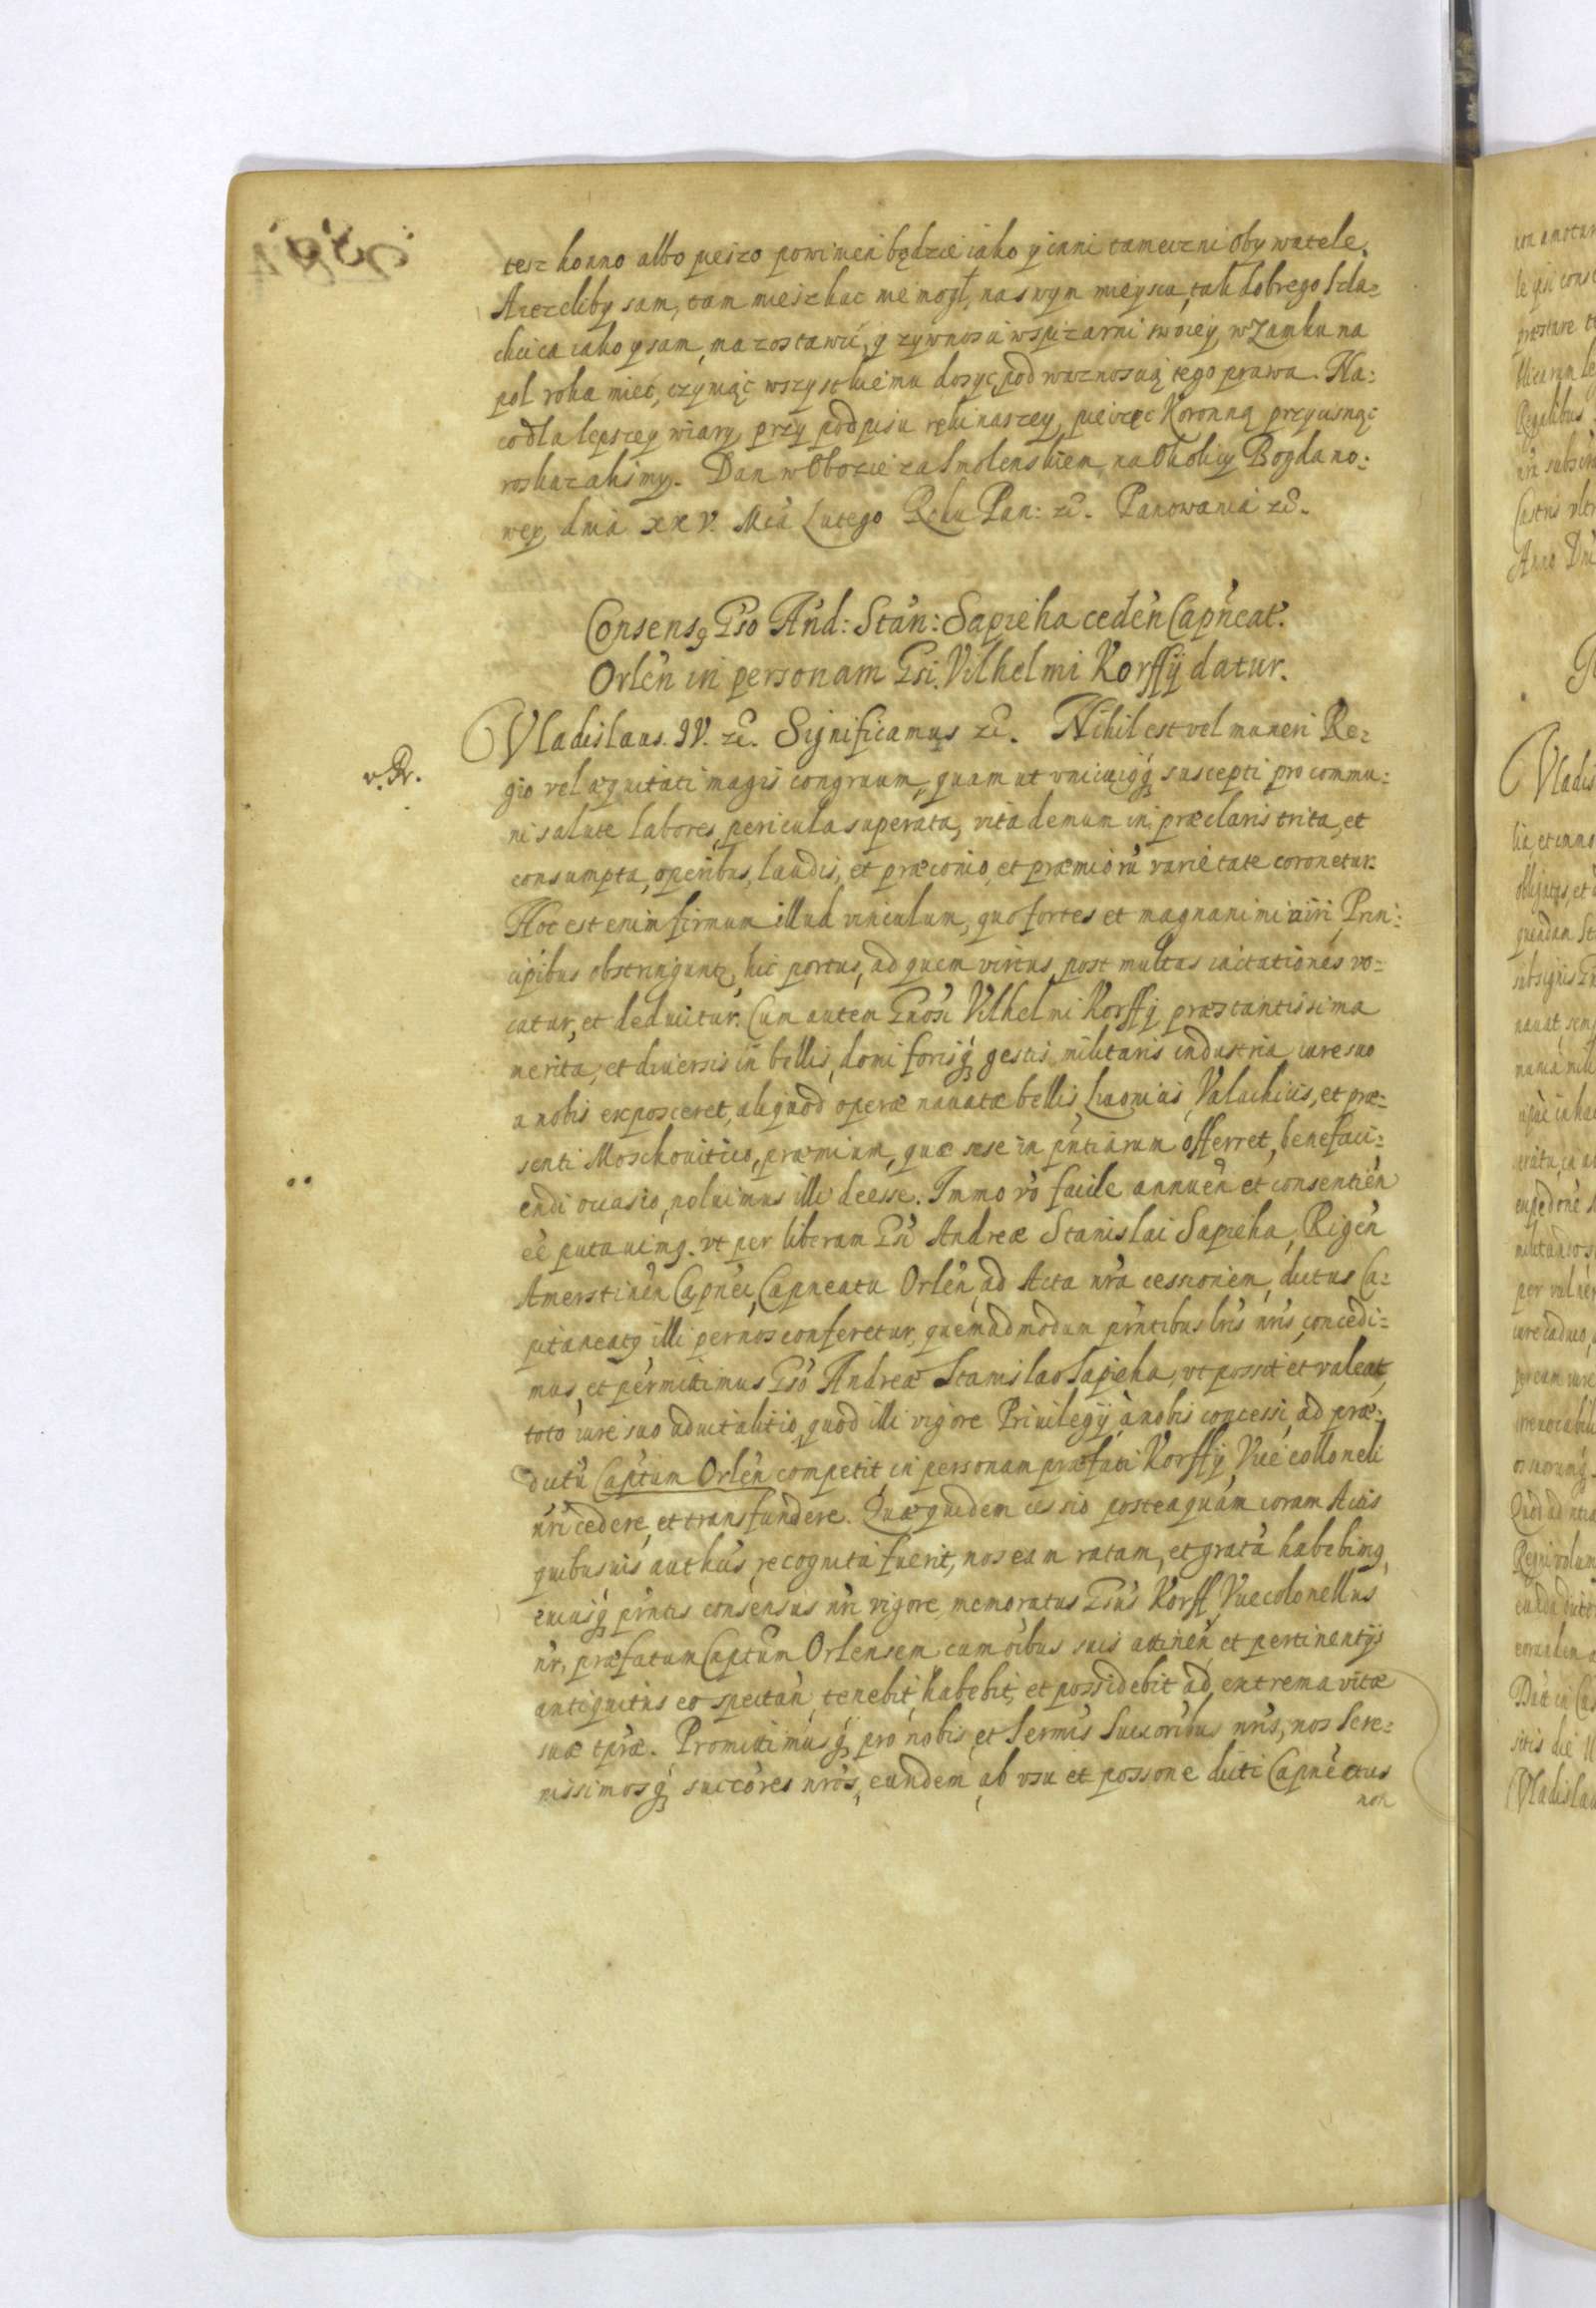 tesz konno albo pieszo powinien będzie iako y inni tameczni Obywatele.
A iezeliby sam, tam mieszkac nie mogł, na swym mieyscu, tak dobrego Szla=
chcica iako y sam, ma zostawić, y zywnosci w spizarni swoiey, w Zamku na
pol roka mieć, czyniąc wszystkiemu dosyc, pod waznoscią tego prawa. Na:
co dla lepszey wiary, przy podpisu ręki naszey, pieczęc Koronną przycisnąc
roskazalismy. Dan w Obozie za Smolenskiem, na Okolicy Bogdano:
wey, dnia XXV. Mca Lutego Roku Pan: zc. Panowania zc.
Consensq Gso And: Stan: Sapieha ceden Capneat.
Orlen in personam Gsi. Vilhelmi Korffij datur.
Vladislaus. IV. zc. Significamus zc. Nihil est vel muneri Re=
gio vel æquitati magis congruum, quam ut vnicuiqq suscepti pro commu=
ni salute labores, pericula superata, vita demum in præclaris trita, et
consumpta, operibus, laudis, et præconio, et præmiorũ varietate coronetur.
Hoc est enim firmum illud vinculum, quo fortes et magnanimi viri Prin:
cipibus obstringuntr, hic portus, ad quem virtus, post multas iactationes vo=
catur, et deducitur. Cum autem Gnosi Vilhelmi Korffij præstantissima
merita, et diuersis in bellis, domi forisqq gestis militaris industria iure suo
a nobis exposceret, aliquod operæ nauatæ bellis Liuonicis, Valachicis, et præ=
senti Moschouitico, præmium, quæ sese in pntiarum offerret, benefaci=
endi occasio, noluimus illi deesse. Immo vo facile annuen et consentien
eē putauimq. vt per liberam Gsi Andreæ Stanislai Sapieha, Rigen
Amerstinen Capnei, Capneatu Orlen, ad Acta nra cessionem, dictus Ca=
pitaneatq illi per nos conferetur, quemadmodum pntibus lris nris, concedi=
mus, et permittimus Gso Andreæ Stanislao Sapieha, vt possit et valeat,
toto iure suo aduitalitio, quod illi vigore Priuilegij à nobis concessi, ad præ=
dictũ Captum Orlen competit, in personam præfati Korffij, Vice colloneli
nri cedere, et transfundere. Quæ quidem cessio posteaquam coram Actis
quibusuis authcis, recognita fuerit, nos eam ratam, et gratã habebimq,
cuiusqq pntis consensus nri vigore, memoratus Gsus Korff Vicecolonellus
nr, præfatum Captum Orlensem cum oibus suis attinen et pertinentijs
antiquitus eo spectan, tenebit, habebit, et possidebit ad extrema vitæ
suæ tpra. Promittimusqq pro nobis et Sermis Succoribus nris, nos Sere=
nissimosqq succores nros, eundem, ab vsu et possone dicti Capneatus
non